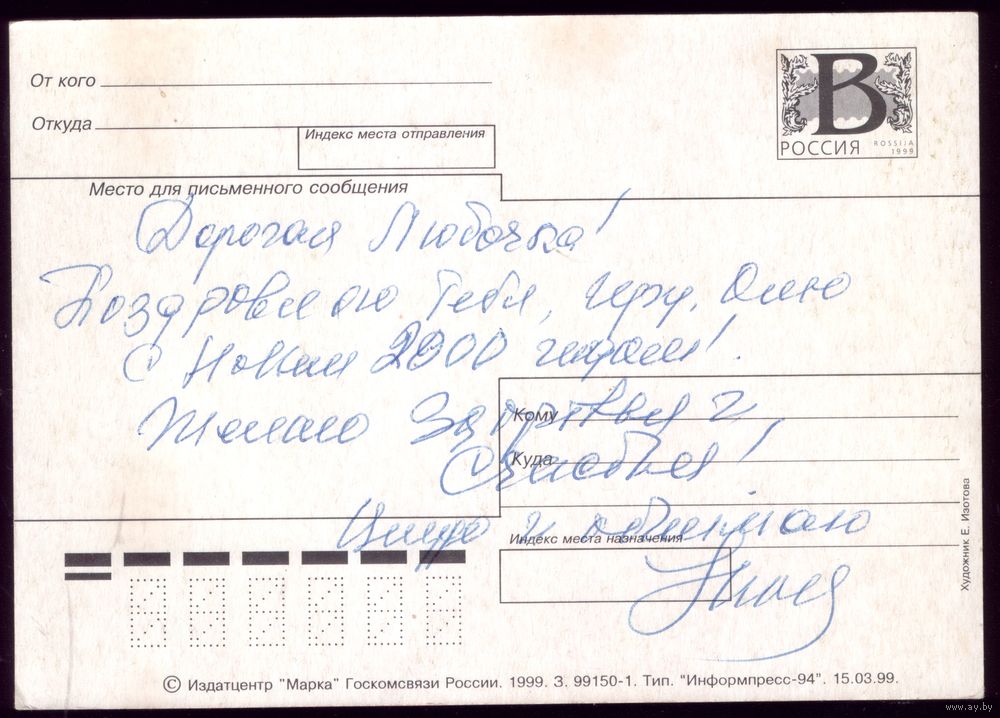 От кого
Откуда
Индекс места отправления
В
РОССИЯ
ROSSIJA
1999
Место для письменного сообщения
Дорогая Любочка!
Поздровляю тебя, Иру, Олю
с Новым 2000 годом!
Желаю Здоровья и
Счастья!
Целую и обнимаю
Кому
Куда
Индекс места назначения
Художник Е. Изотова
© Издатцентр "Марка" Госкомсвязи России. 1999. З. 99150-1. Тип. "Информпресс-94". 15.03.99.
www.ay.by